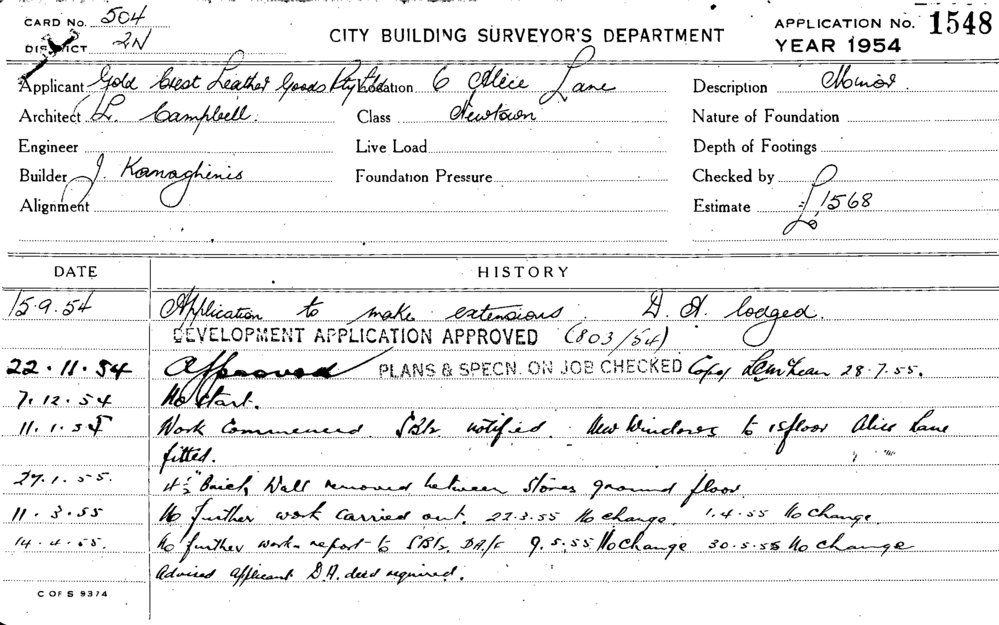 CARD No. 504
DISTRICT 2N
CITY BUILDING SURVEYOR'S DEPARTMENT
APPLICATION No. 1548
YEAR 1954
Applicant Gold Crest Leather Goods Pty Ltd Location 6 Alice Lane Description Minor
Architect L. Campbell. Class Newtown Nature of Foundation
Engineer Live Load Depth of Footings
Builder J. Kanaghinis Foundation Pressure Checked by
Alignment Estimate £1568
DATE HISTORY
15.9.54 Application to make extensions. D.A. lodged.
DEVELOPMENT APPLICATION APPROVED (803/54)
22.11.54 Approved PLANS & SPECN. ON JOB CHECKED 28.7.55.
7.12.54 No start.
11.1.55 Work Commenced notified. New Windows to floor Alice Lane
fitted.
27.1.55. 4½" Brick Wall removed between Stores ground floor
11.3.55 No further work carried out. 22.3.55 No change. 1.4.55 No change.
14.4.55. No further work report to 9.5.55 No Change 30.5.55 No change
Advised applicant D.A. deed required.
C OF S 9374